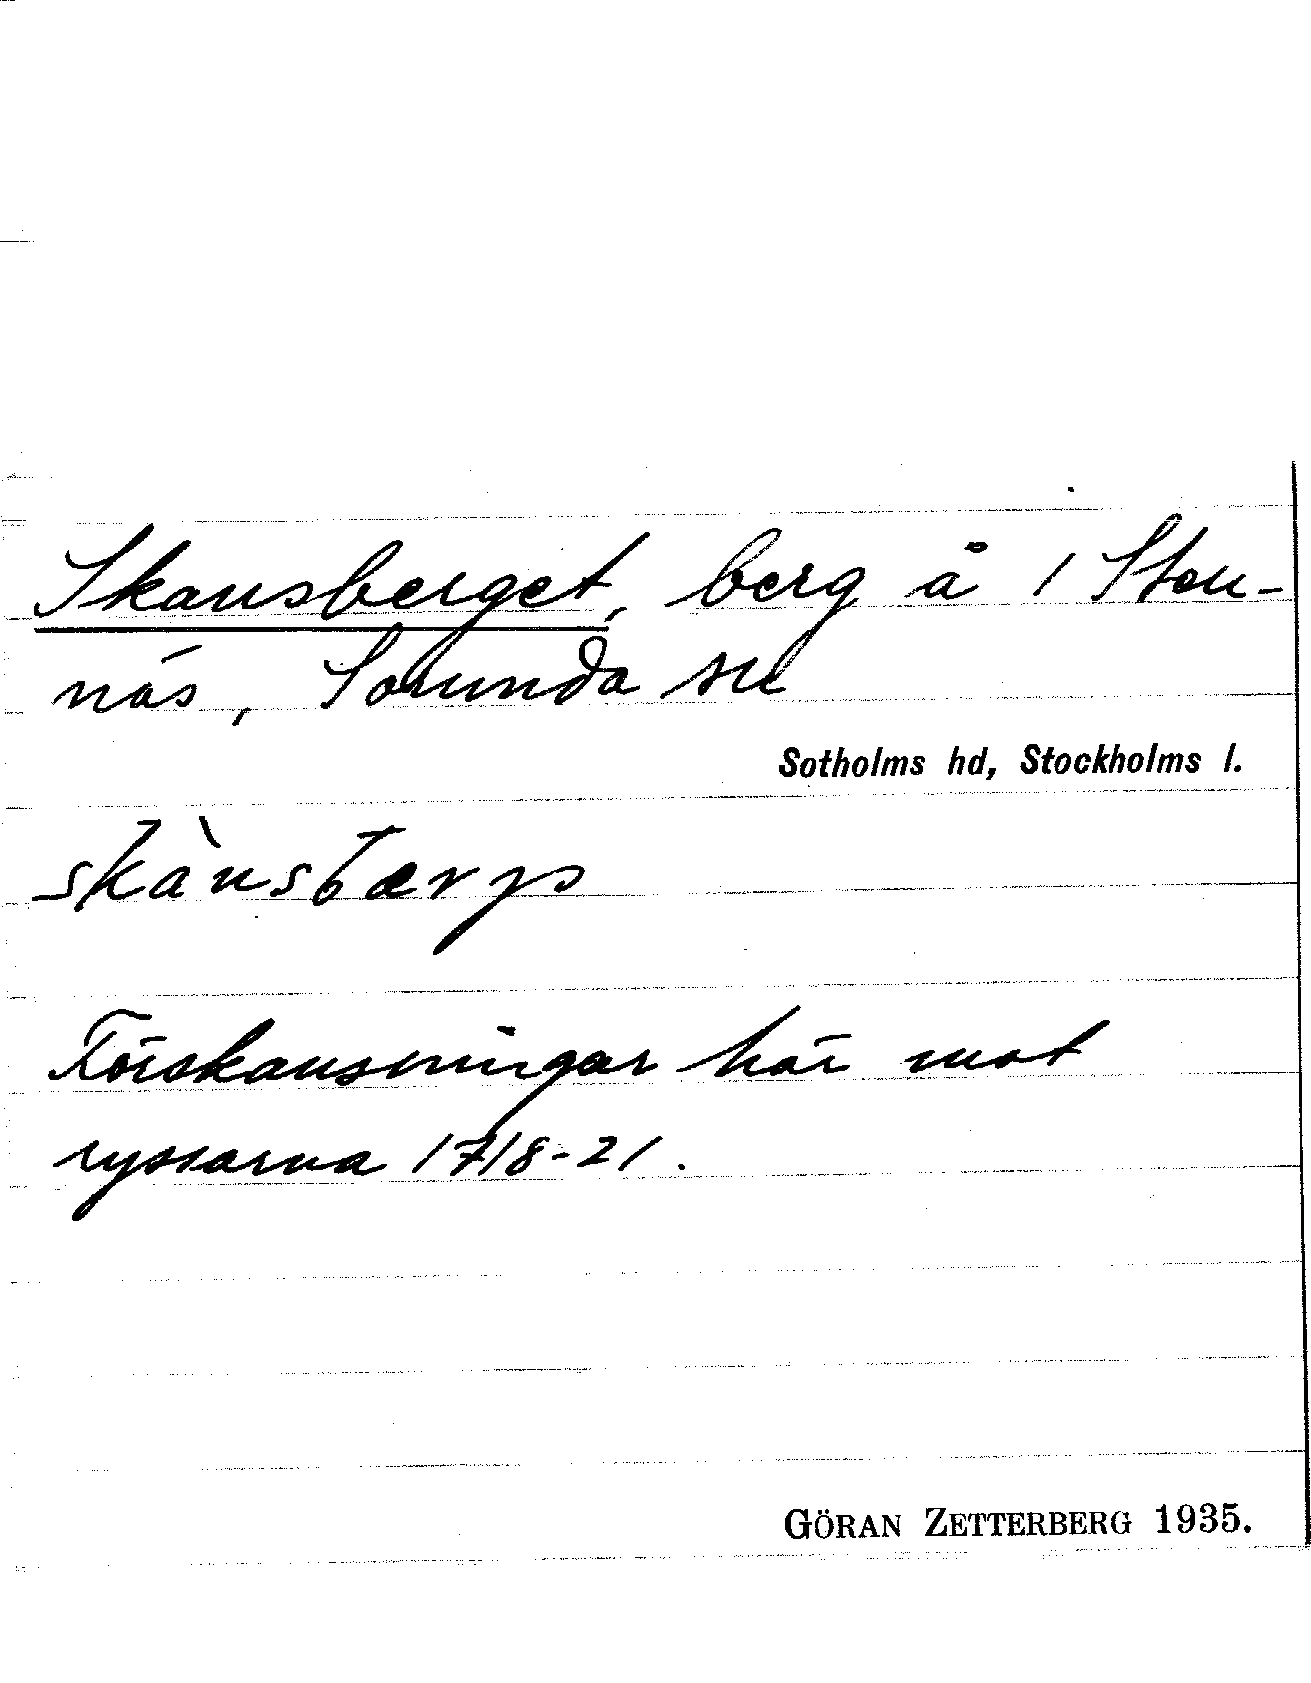 Skansberget, berg å 1 Sten-
näs, Sorunda sn
Sotholms hd, Stockholms l.
skànsbærjə
Förskansningar här mot
ryssarna 1718-21.
GÖRAN ZETTERBERG 1935.